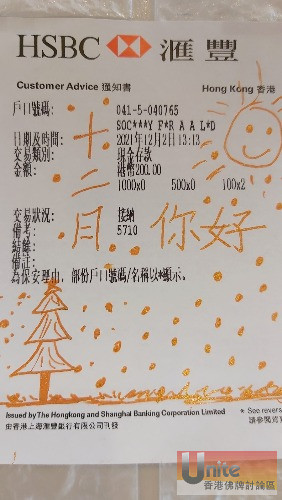 HSBC 滙豐
Customer Advice 通知書 Hong Kong 香港
戶口號碼: 041-5-040765
SOC***Y F*R A A L*D
日期及時間: 2021年12月2日13:13
交易類別: 現金存款
金額: 港幣200.00
1000x0 500x0 100x2
交易狀況: 接納
備考: 5710
結餘:
備註:
為保安理由, 部份戶口號碼/名稱以*顯示。
十二月
你好
Issued by The Hongkong and Shanghai Banking Corporation Limited
由香港上海滙豐銀行有限公司刊發
* See revers
請參閱背
Unite
香港佛牌討論區